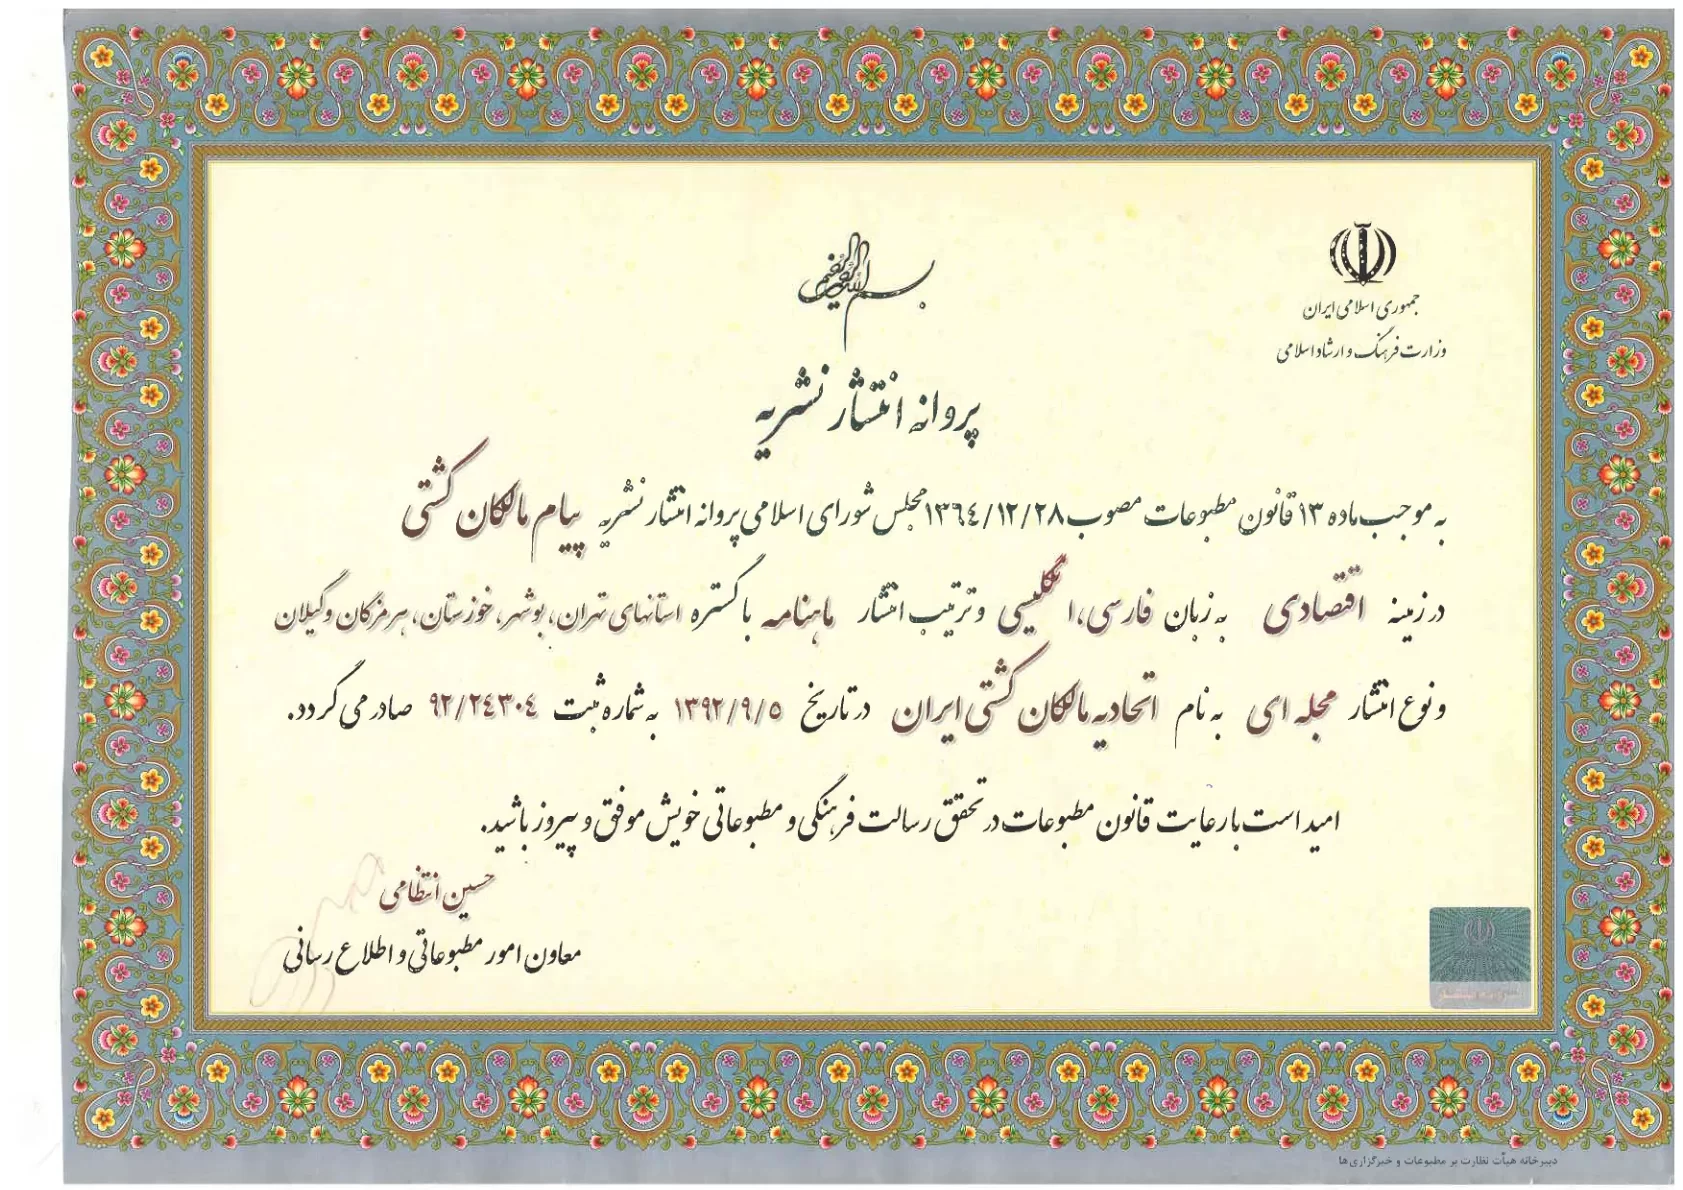 بسم الله الرحمن الرحیم
جمهوری اسلامی ایران
وزارت فرهنگ و ارشاد اسلامی
پروانه انتشار نشریه
به موجب ماده ۱۳ قانون مطبوعات مصوب ۱۳٦٤/۱۲/۲۸ مجلس شورای اسلامی پروانه انتشار نشریه پیام مالکان کشتی
در زمینه اقتصادی به زبان فارسی، انگلیسی و ترتیب انتشار ماهنامه با گستره استانهای تهران، بوشهر، خوزستان، هرمزگان و گیلان
و نوع انتشار مجله ای به نام اتحادیه مالکان کشتی ایران در تاریخ ۱۳۹۲/۹/۵ به شماره ثبت ۹۲/۲٤۳۰٤ صادر می گردد.
امید است با رعایت قانون مطبوعات در تحقق رسالت فرهنگی و مطبوعاتی خویش موفق و پیروز باشید.
حسین انتظامی
معاون امور مطبوعاتی و اطلاع رسانی
دبیرخانه هیأت نظارت بر مطبوعات و خبرگزاری‌ها